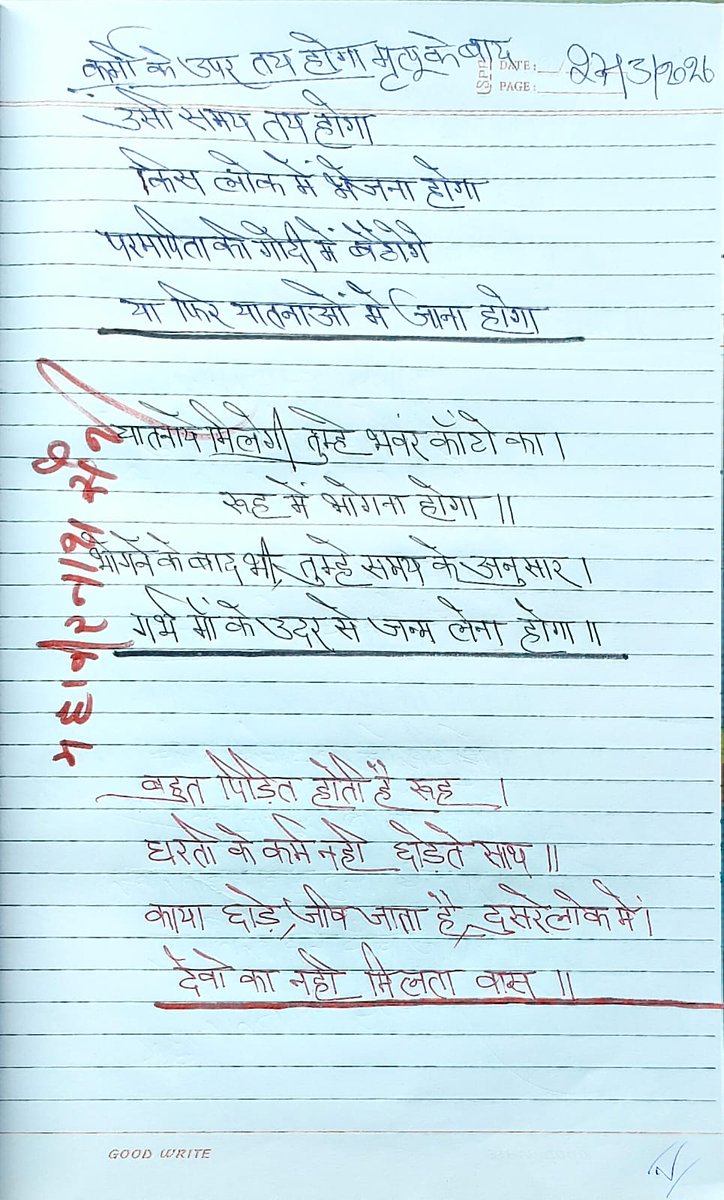 कर्मो के उपर तय होगा मृत्यू के बाद
DATE: 27/3/2026
PAGE:
उसी समय तय होगा
किस लोक में भेजना होगा
परमपिता की गोंदी में बैठोगे
या फिर यातनाओं में जाना होगा
यातनाये मिलेगी तुम्हे भवंर काँटो का।
रूह में भोगना होगा ॥
भोगने के बाद भी, तुम्हे समय के अनुसार।
गर्भ माँ के उदर से जन्म लेना होगा ॥
बहुत पिड़ित होती है रूह ।
धरती के कर्म नही छोड़ते साथ ॥
काया छोड़े, जीव जाता है, दुसरे लोक में।
देवो का नही मिलता वास ॥
महावीर नाथ
GOOD WRITE